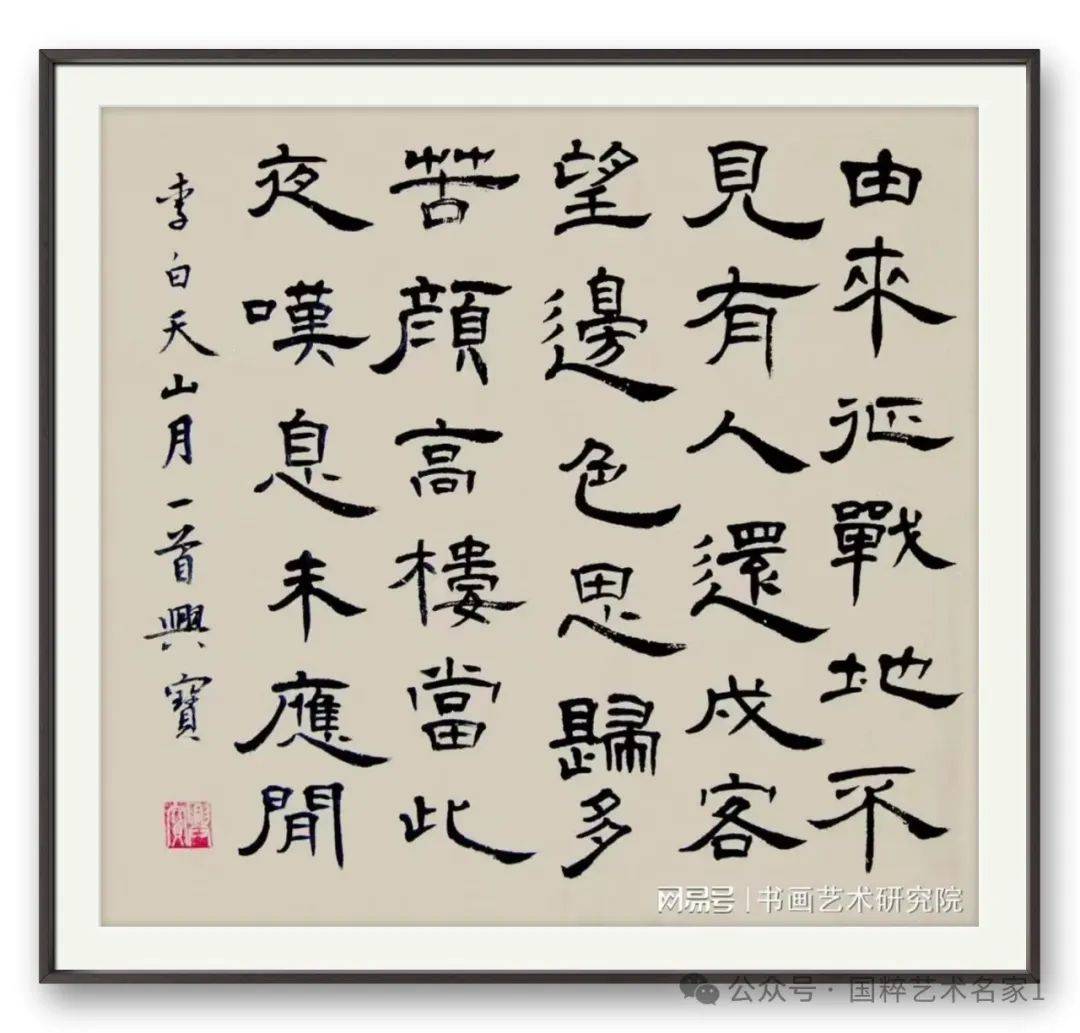 由來征戰地不
見有人還戍客
望邊色思歸多
苦顏高樓當此
夜嘆息未應閒
李白天山月一首興寶
网易号 | 书画艺术研究院
公众号 · 国粹艺术名家1